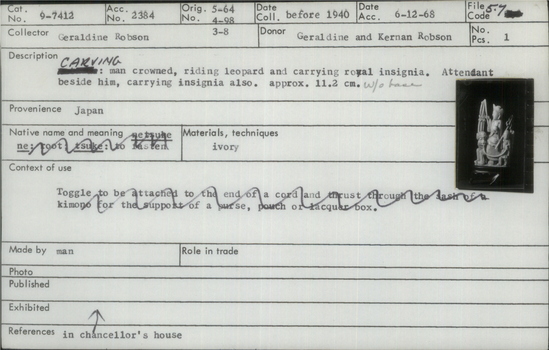 Cat. No. 9-7412 Acc. No. 2384 Orig. 5-64 4-98 Date Coll. before 1940 Date Acc. 6-12-68 File Code 5.7
Collector 3-8 Donor No. Pcs. 1
Geraldine Robson Geraldine and Kernan Robson
Description CARVING
: man crowned, riding leopard and carrying royal insignia. Attendant
beside him, carrying insignia also. approx. 11.2 cm. w/o base
Provenience Japan
Native name and meaning netsuke Materials, techniques
ne: root; tsuke: to fasten ivory
Context of use
Toggle to be attached to the end of a cord and thrust through the sash of a
kimono for the support of a purse, pouch or lacquer box.
Made by man Role in trade
Photo
Published
Exhibited
References in chancellor's house